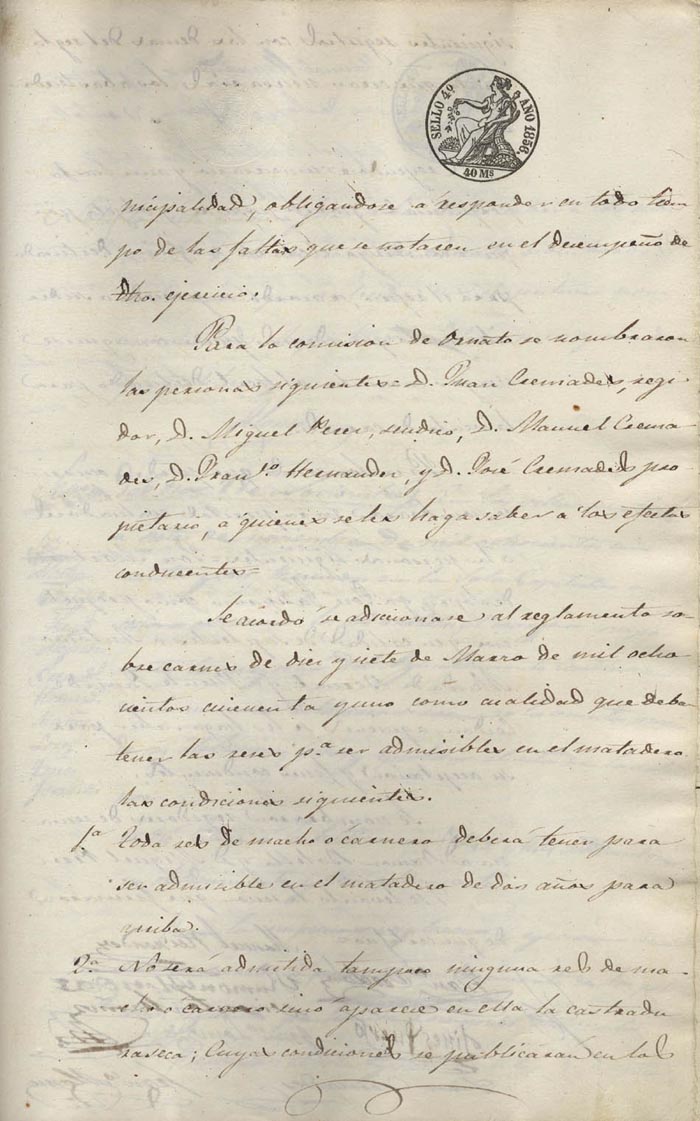 SELLO 4º AÑO 1856.
40 Ms
nicipalidad, obligandose á responder en todo tiem-
po de las faltas que se notaren en el desempeño de
dho. ejercicio.
Para la comision de Ornato se nombraron
las personas siguientes= D. Juan Cremades, regi-
dor, D. Miguel Perez, sindico, D. Manuel Crema-
des, D. Fran.co Hernandez, y D. José Cremades pro-
pietario, á quienes se les haga saber á los efectos
conducentes=
Se acordó se adicionase al reglamento so-
bre carnes de diez y siete de Marzo de mil ocho-
cientos cincuenta y uno como cualidad que deban
tener las reses p.a ser admisibles en el matadero
las condiciones siguientes.
1.a Toda res de macho ó carnero deberá tener para
ser admisible en el matadero de dos años para
arriba.
2.a No será admitida tampoco ninguna res de ma-
cho ó carnero sino aparece en ella la castradu
ra seca; cuyas condiciones se publicarán en los